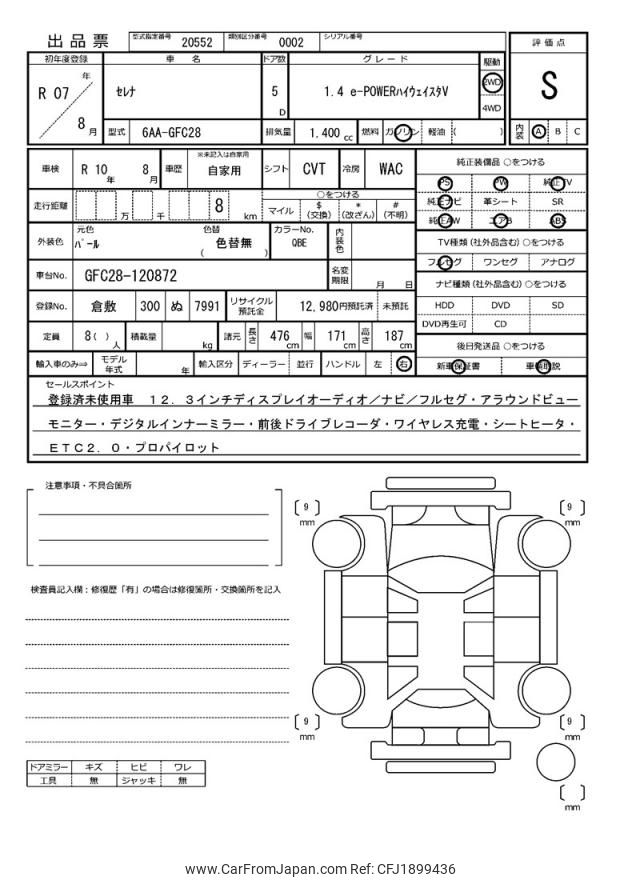 出品票 型式指定番号 20552 類別区分番号 0002 シリアル番号
評価点
S
内装 A B C
初年度登録 車名 ドア数 グレード 駆動
R 07 年 8 月
セレナ 5 D 1.4 e-POWERハイウェイスタV 2WD 4WD
型式 6AA-GFC28 排気量 1.400 cc 燃料 ガソリン 軽油 ( )
車検 R 10 年 8 月 車歴 ※未記入は自家用 自家用 シフト CVT 冷房 WAC
走行距離 万 千 8 km ○をつける
マイル $ (交換) * (改ざん) # (不明)
外装色 元色 パール 色替 ( 色替無 ) カラーNo. QBE 内装色
車台No. GFC28-120872 名変期限 月 日
登録No. 倉敷 300 ぬ 7991 リサイクル預託金 12,980円預託済 未預託
定員 8( ) 人 積載量 kg 諸元 長さ 476 cm 幅 171 cm 高さ 187 cm
輸入車のみ⇒ モデル年式 年 輸入区分 ディーラー 並行 ハンドル 左 右
純正装備品 ○をつける
PS PW 純正TV
純正ナビ 革シート SR
純正AW エアB ABS
TV種類 (社外品含む) ○をつける
フルセグ ワンセグ アナログ
ナビ種類 (社外品含む) ○をつける
HDD DVD SD
DVD再生可 CD
後日発送品 ○をつける
新車保証書 車輌取説
セールスポイント
登録済未使用車 12.3インチディスプレイオーディオ/ナビ/フルセグ・アラウンドビュー
モニター・デジタルインナーミラー・前後ドライブレコーダ・ワイヤレス充電・シートヒータ・
ETC2.0・プロパイロット
注意事項・不具合箇所
検査員記入欄:修復歴「有」の場合は修復箇所・交換箇所を記入
ドアミラー キズ ヒビ ワレ
工具 無 ジャッキ 無
[ 9 ] mm
[ 9 ] mm
[ 9 ] mm
[ 9 ] mm
[ ] mm
www.CarFromJapan.com Ref: CFJ1899436